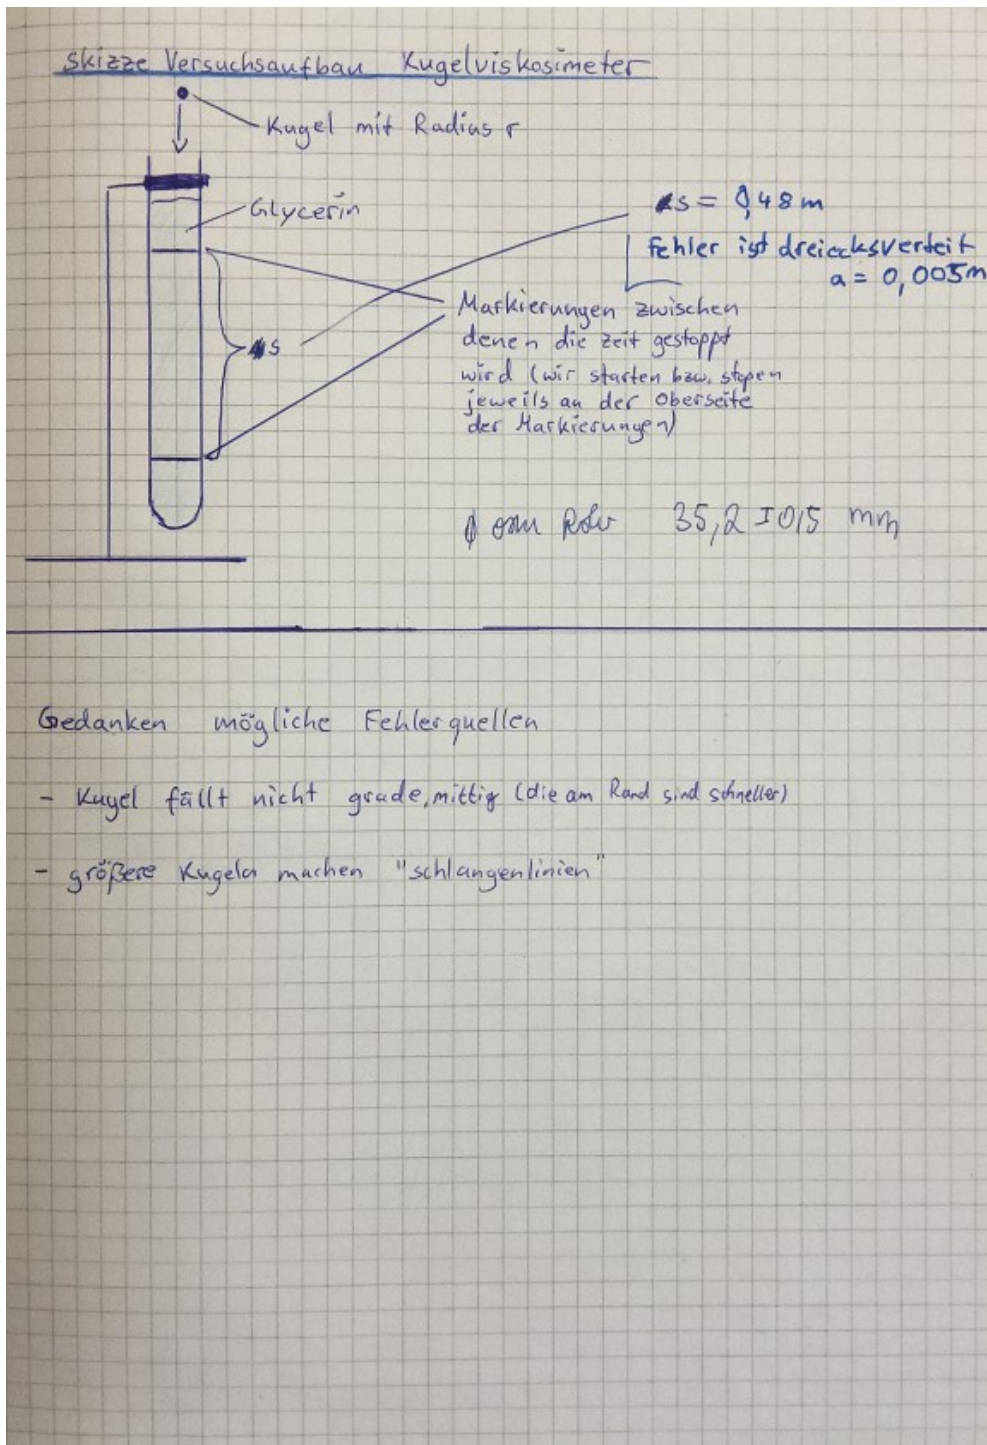 Skizze Versuchsaufbau Kugelviskosimeter
Kugel mit Radius r
Glycerin
s = 0,48 m
Fehler ist dreiecksverteit
a = 0,005m
s
Markierungen zwischen
denen die Zeit gestoppt
wird (wir starten bzw. stopen
jeweils an der Oberseite
der Markierungen)
35,2 ± 0,5 mm
Gedanken mögliche Fehlerquellen
- Kugel fällt nicht grade, mittig (die am Rand sind schneller)
- größere Kugeln machen "schlangenlinien"